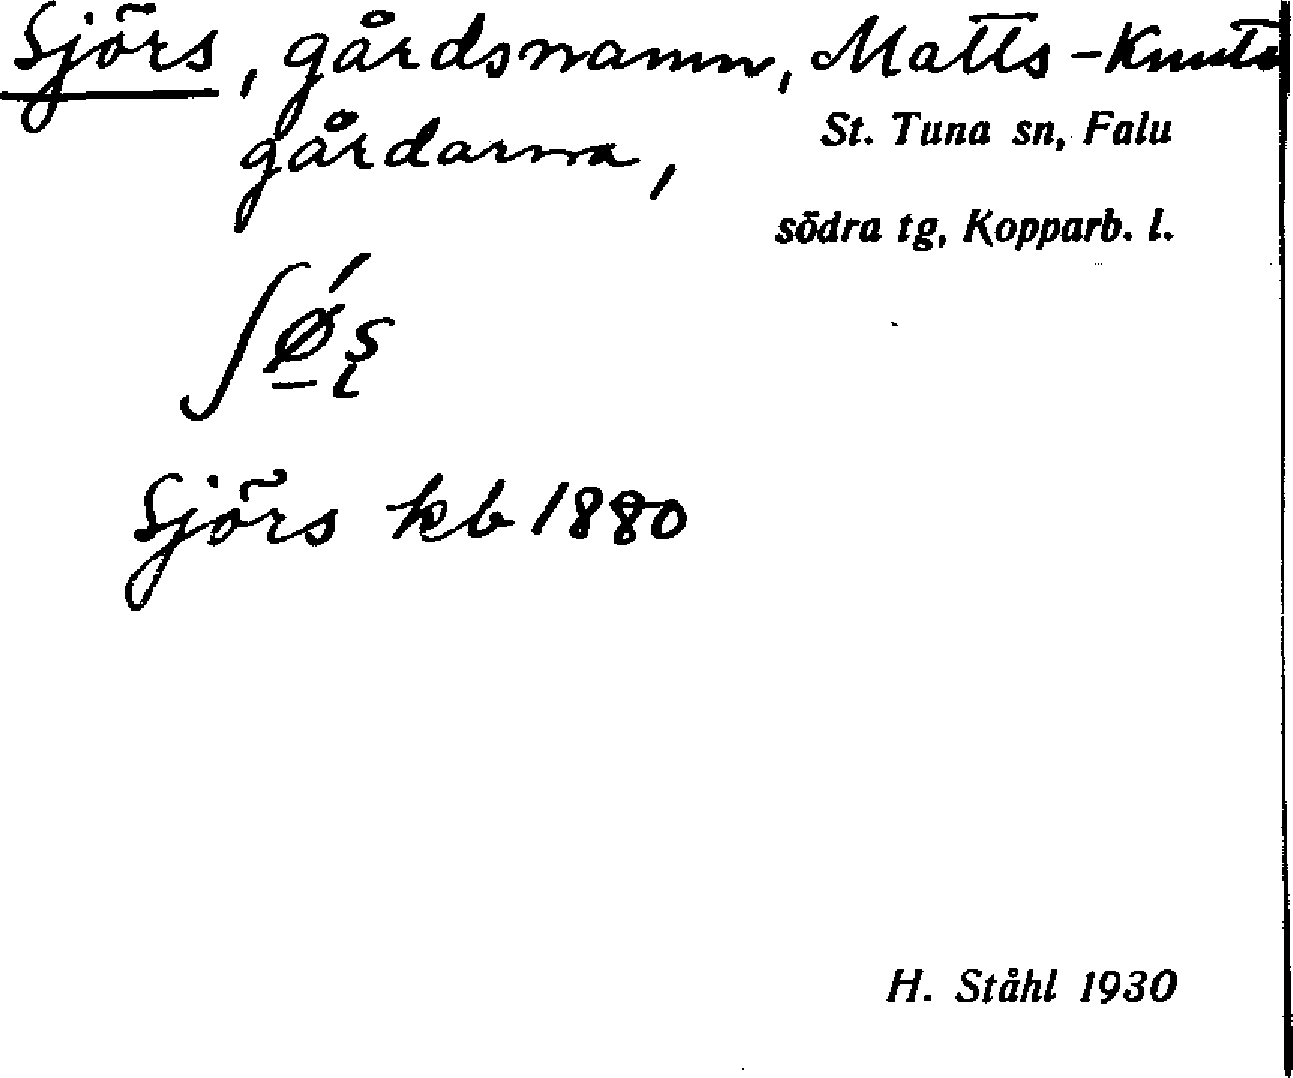 Sjörs, gårdsnamn, Matts-Knuts
gårdarna,
St. Tuna sn, Falu
södra tg, Kopparb. l.
Sjörs kb 1880
H. Ståhl 1930